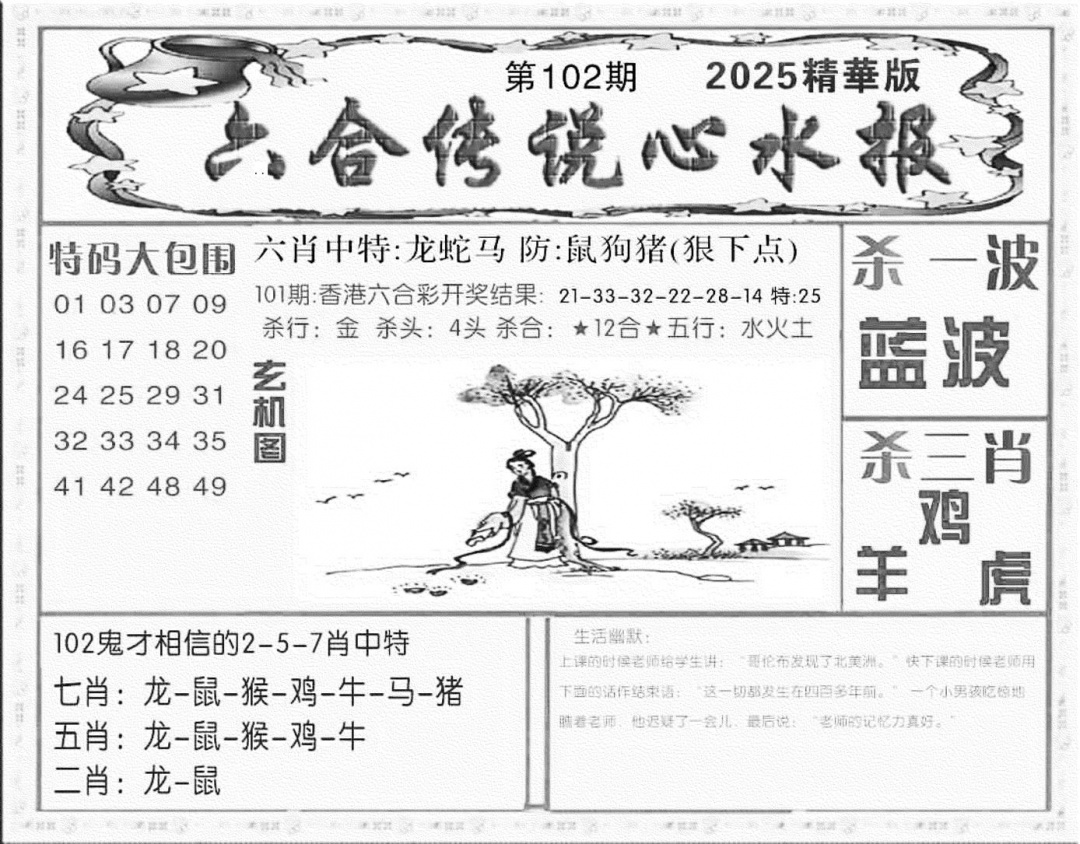 第102期 2025精華版
六合传说心水报
特码大包围
01 03 07 09
16 17 18 20
24 25 29 31
32 33 34 35
41 42 48 49
六肖中特:龙蛇马 防:鼠狗猪(狠下点)
101期:香港六合彩开奖结果: 21-33-32-22-28-14 特:25
杀行：金 杀头：4头 杀合：★12合★五行：水火土
玄机图
杀一波
蓝波
杀三肖
鸡
羊 虎
102鬼才相信的2-5-7肖中特
七肖：龙-鼠-猴-鸡-牛-马-猪
五肖：龙-鼠-猴-鸡-牛
二肖：龙-鼠
生活幽默：
上课的时候老师给学生讲：“哥伦布发现了北美洲。”快下课的时候老师用
下面的话作结束语：“这一切都发生在四百多年前。” 一个小男孩吃惊地
瞧着老师，他迟疑了一会儿，最后说：“老师的记忆力真好。”